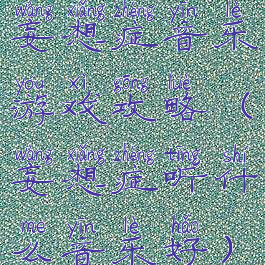 wàng xiǎng zhèng yīn lè
妄想症音乐
yóu xì gōng lüè
游戏攻略（
wàng xiǎng zhèng tīng shí
妄想症听什
me yīn lè hǎo
么音乐好）